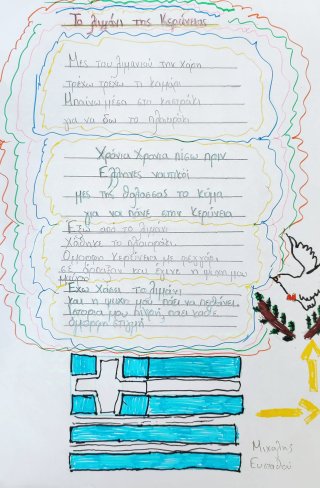 Το λιμάνι της Κερύνειας
Μες του λιμανιού την άκρη
τρέχω τρέχω τι καμάρι
Μπαίνω μέσα στο καστράκι
για να δω το πλοιαράκι
Χρόνια Χρόνια πίσω πριν
Έλληνες ναυτικοί
μες της θάλασσας το κύμα
για να πάνε στην Κερύνεια
Έξω από το λιμάνι
Χάθηκε το πλοιαράκι.
Όμορφη Κερύνεια με φεγγάρι
σε και έγινε η ψυχή μου
μαύρη
Έχω χάσει το λιμάνι
και η ψυχή μου πάει να πεθάνει.
Ιστορία μου πάει κάθε
όμορφη στιγμή
Μιχάλης